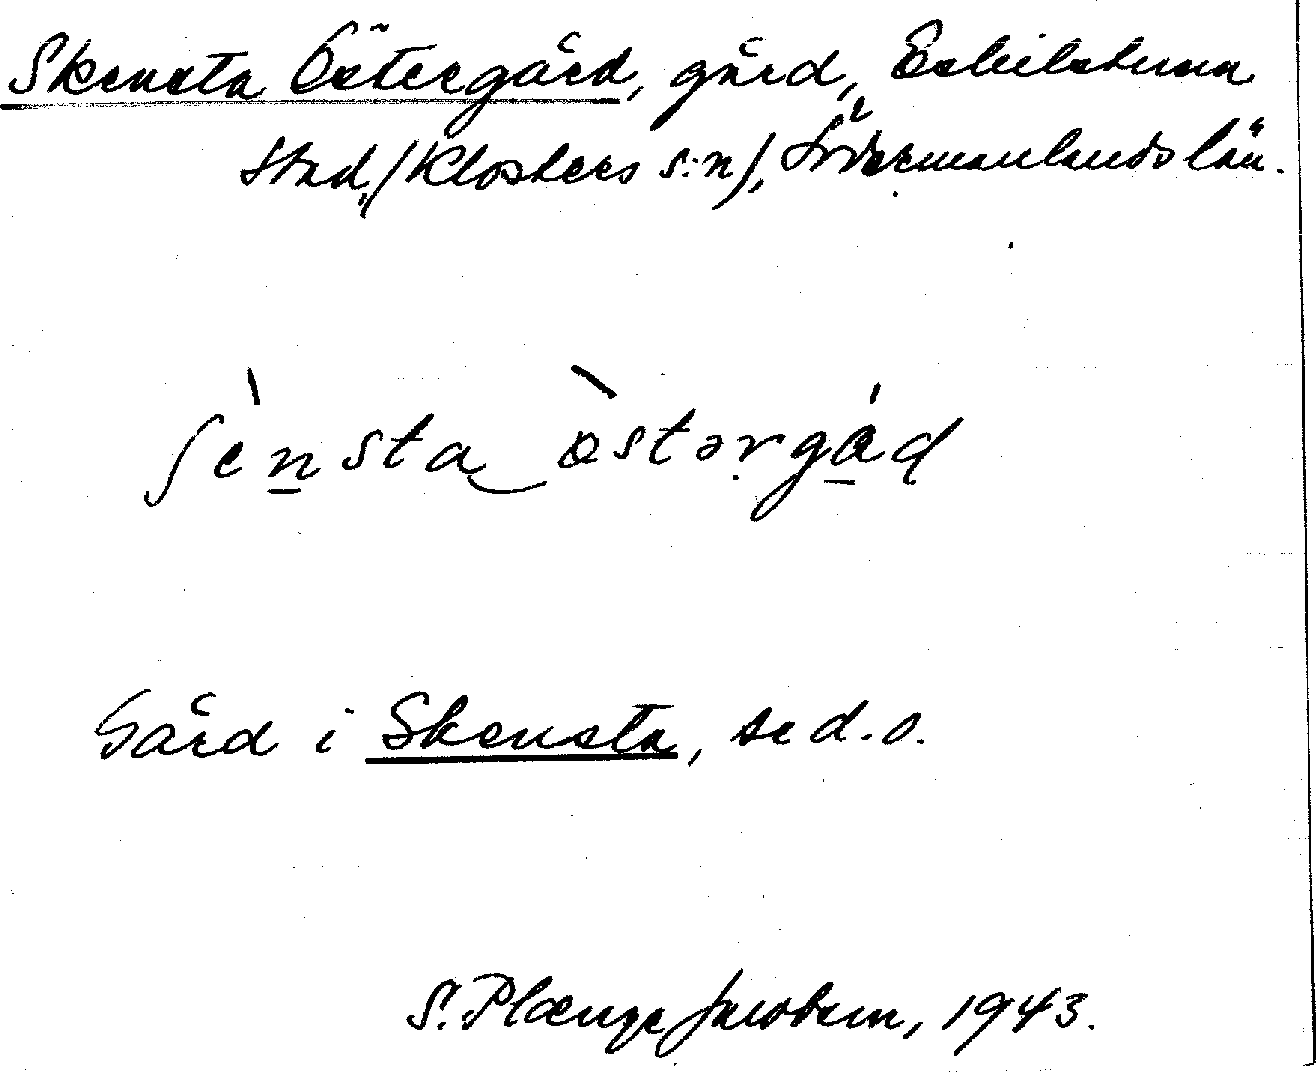 Skensta Östergård, gård, Eskilstuna
stad, (Klosters s:n), Södermanlands län.
ʃènsta òstərgárd
Gård i Skensta, se d.o.
S. Plænge Jacobson, 1943.